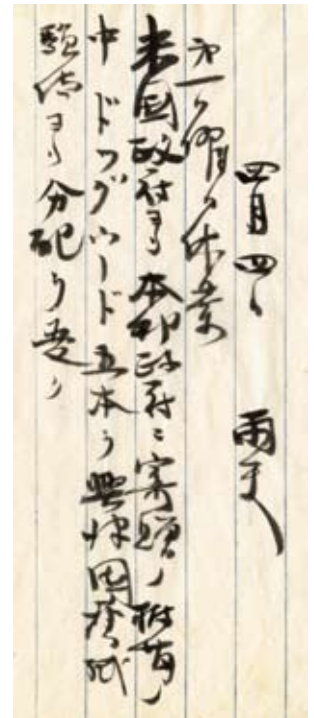 四月四日 雨天
第一月曜日休業
米国政府ヨリ本邦政府ニ寄贈ノ樹苗ノ
中ドッグウード五本ヲ興津園芸試
験場ヨリ分配ヲ受ク